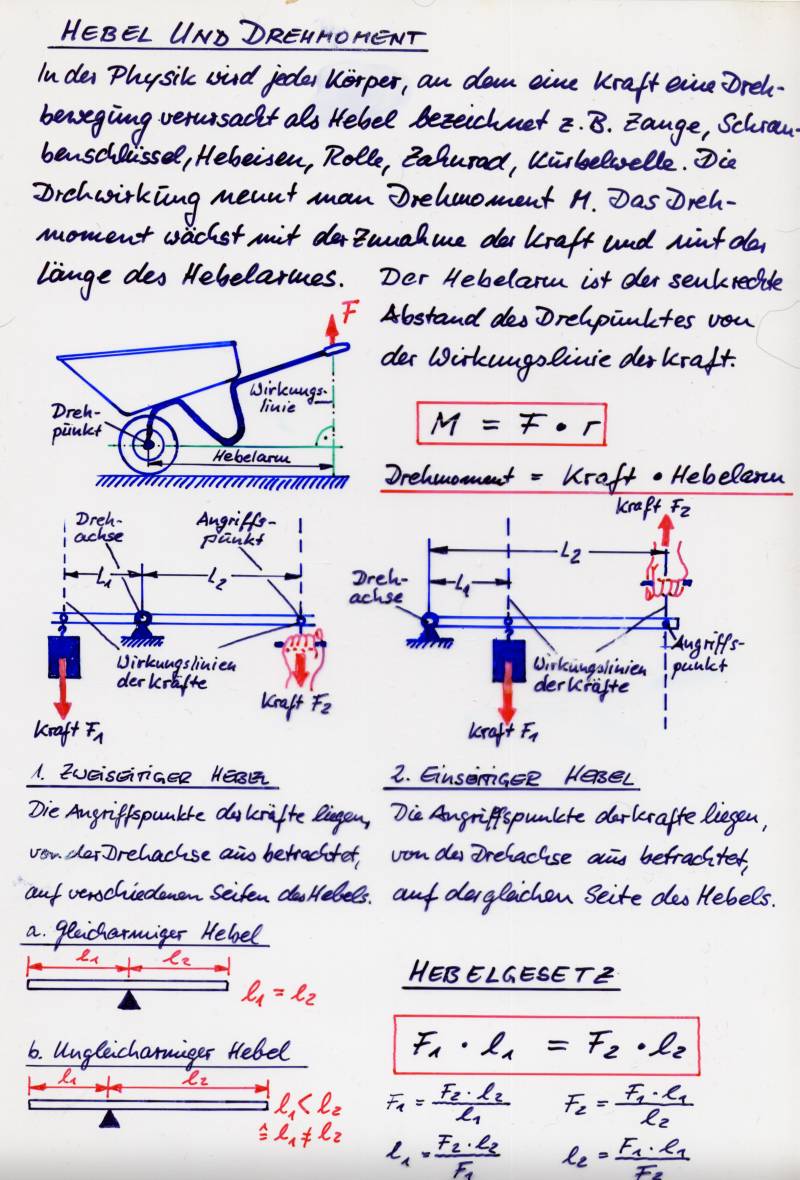 HEBEL UND DREHMOMENT
In der Physik wird jeder Körper, an dem eine Kraft eine Dreh-
bewegung verursacht als Hebel bezeichnet z.B. Zange, Schrau-
benschlüssel, Hebeisen, Rolle, Zahnrad, Kurbelwelle. Die
Drehwirkung nennt man Drehmoment M. Das Dreh-
moment wächst mit der Zunahme der Kraft und mit der
Länge des Hebelarmes. Der Hebelarm ist der senkrechte
Abstand des Drehpunktes von
der Wirkungslinie der Kraft.
F
Wirkungs-
linie
Dreh-
punkt
Hebelarm
M = F • r
Drehmoment = Kraft • Hebelarm
Dreh-
achse
Angriffs-
punkt
L1
L2
Wirkungslinien
der Kräfte
Kraft F1
Kraft F2
Kraft F2
L2
L1
Dreh-
achse
Angriffs-
punkt
Wirkungslinien
der Kräfte
Kraft F1
1. ZWEISEITIGER HEBEL
Die Angriffspunkte der Kräfte liegen,
von der Drehachse aus betrachtet,
auf verschiedenen Seiten des Hebels.
a. Gleicharmiger Hebel
l1
l2
l1 = l2
b. Ungleicharmiger Hebel
l1
l2
l1 < l2
≙ l1 ≠ l2
2. EINSEITIGER HEBEL
Die Angriffspunkte der Krafte liegen,
von der Drehachse aus betrachtet,
auf der gleichen Seite des Hebels.
HEBELGESETZ
F1 • l1 = F2 • l2
F1 = F2 · l2 / l1
F2 = F1 · l1 / l2
l1 = F2 · l2 / F1
l2 = F1 · l1 / F2